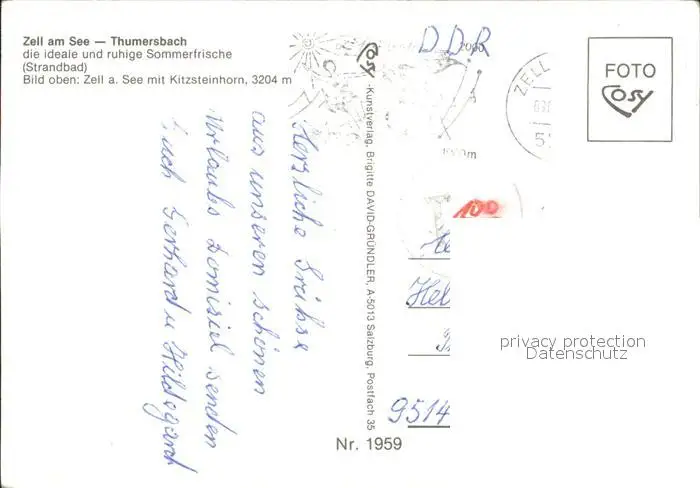 Zell am See — Thumersbach
die ideale und ruhige Sommerfrische
(Strandbad)
Bild oben: Zell a. See mit Kitzsteinhorn, 3204 m
DDR
2000
Cosy
ZELL
FOTO
Cosy
Herzliche Grüße
aus unseren schönen
Urlaubs Domiziel senden
Euch Gerhard u Hildegard
-Kunstverlag, Brigitte DAVID-GRÜNDLER, A-5013 Salzburg, Postfach 35
100
Hel
9514
privacy protection
Datenschutz
Nr. 1959